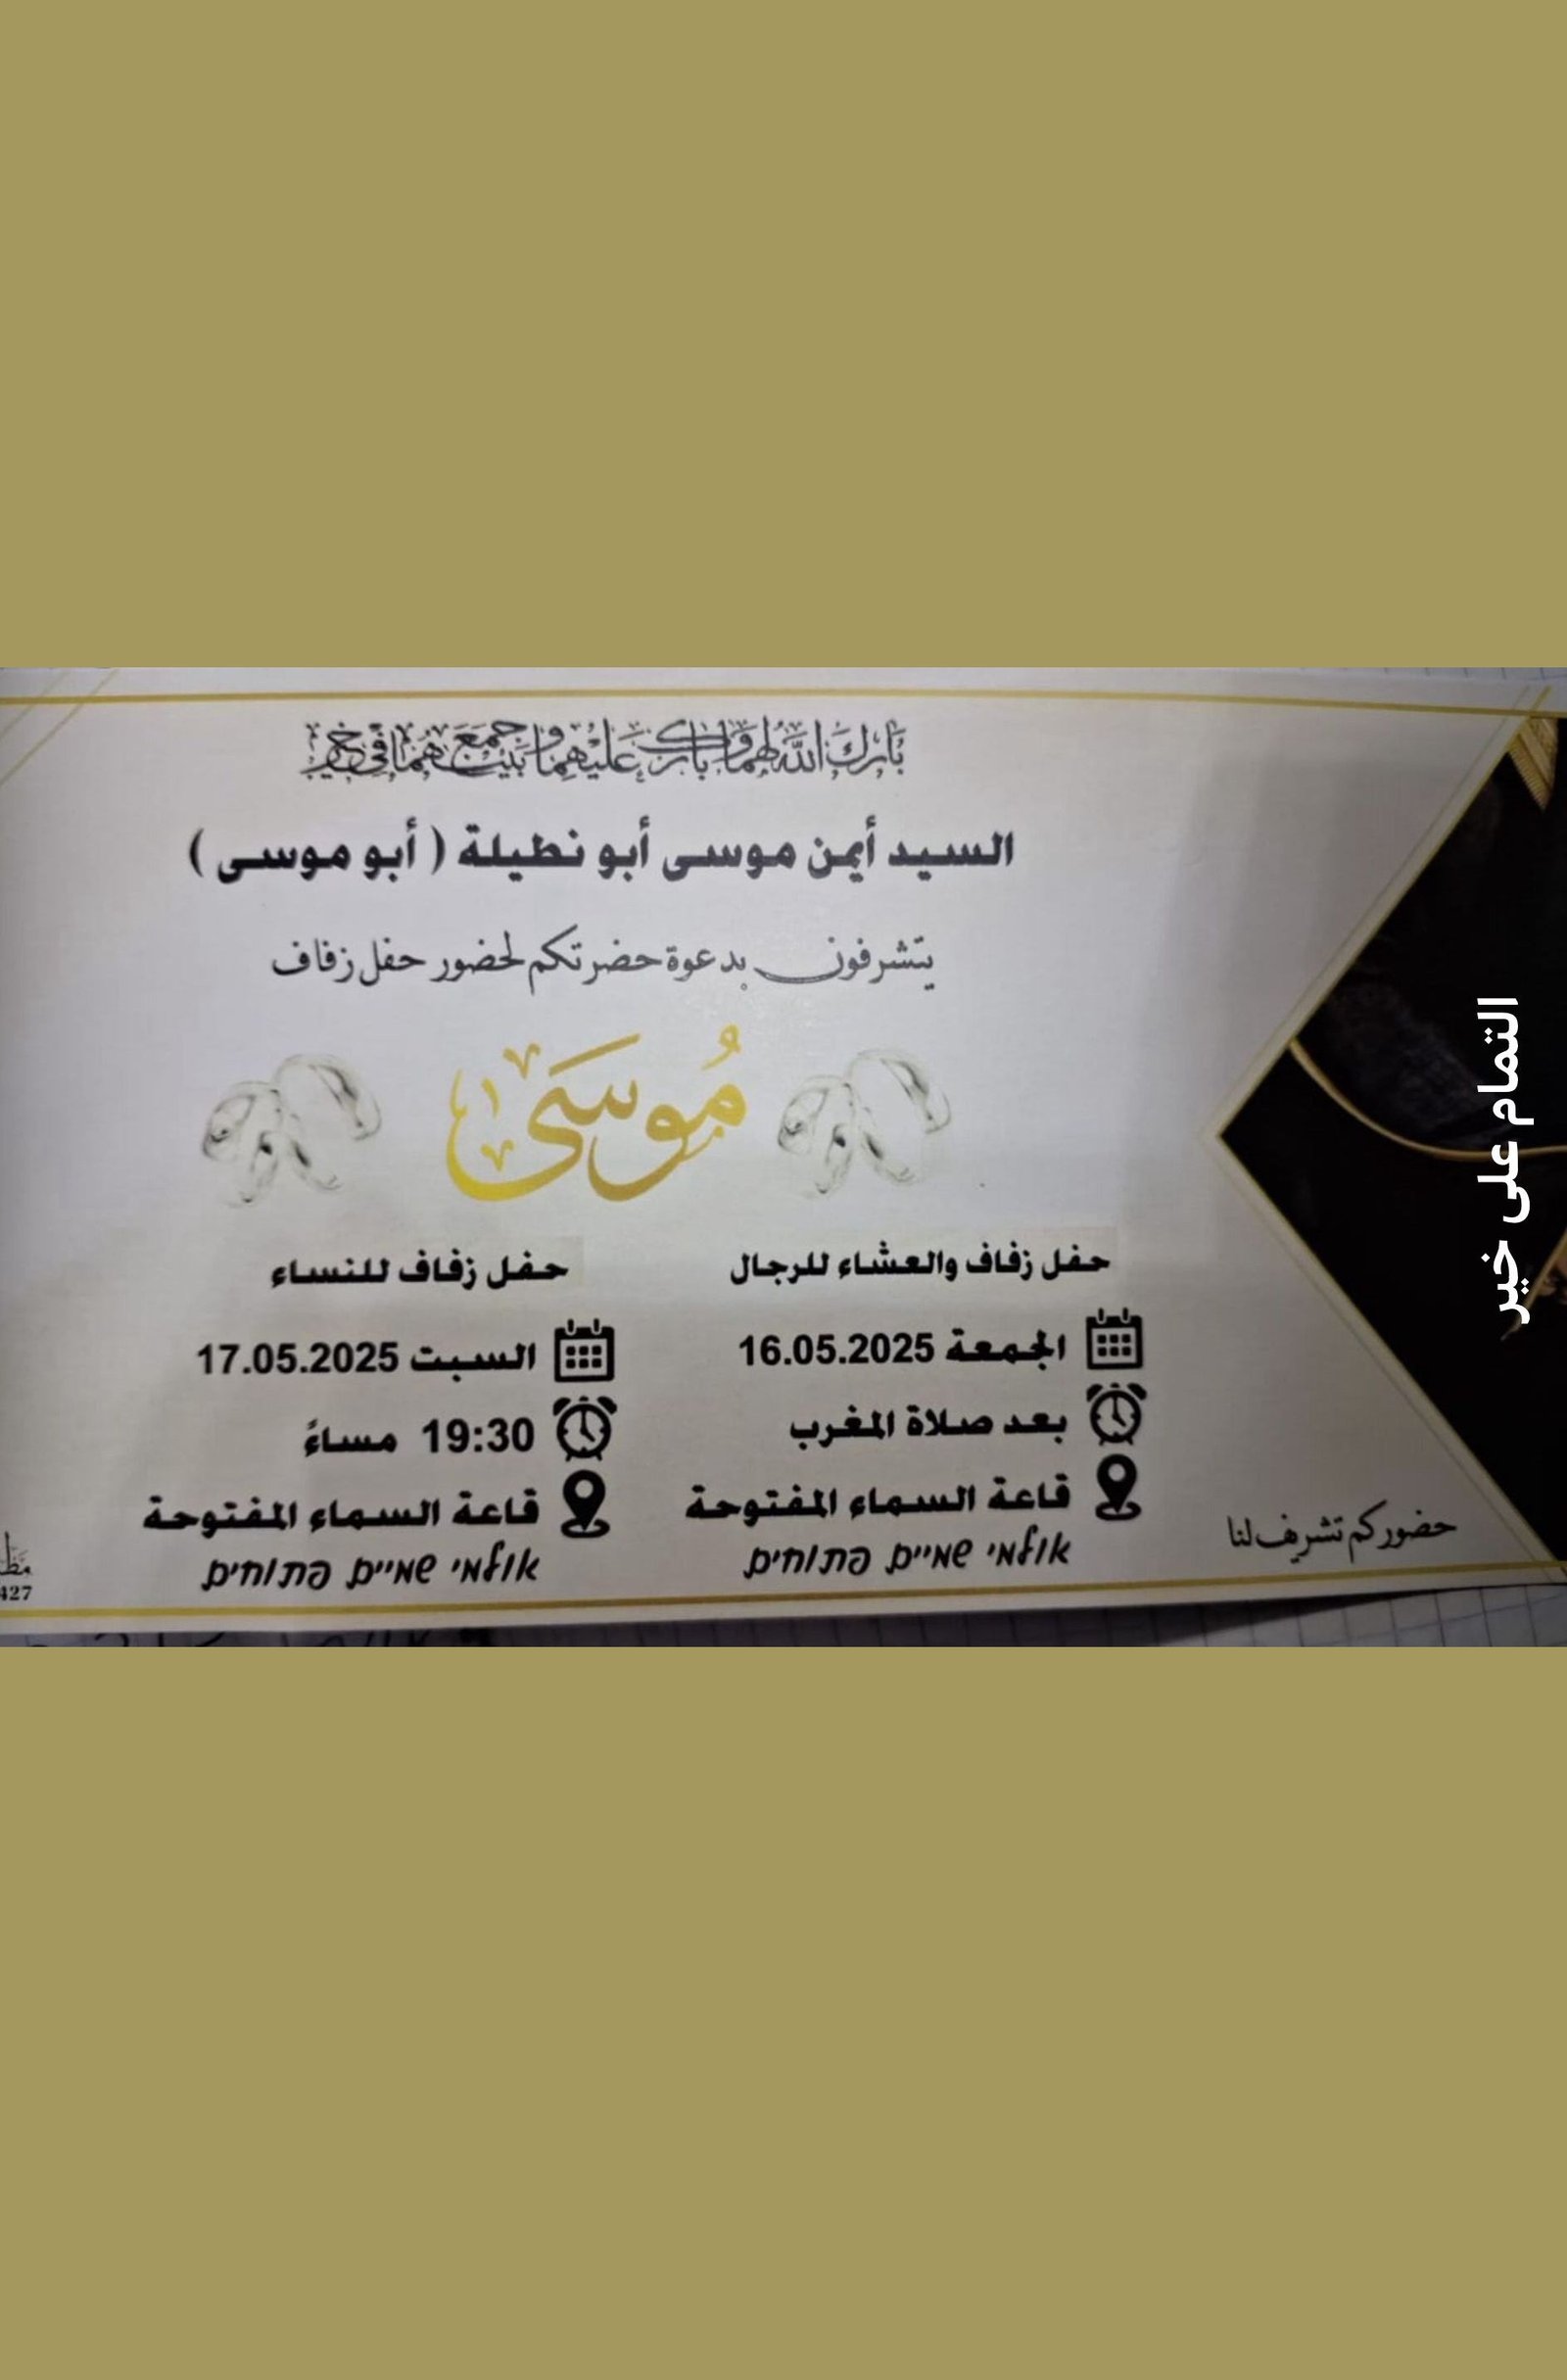 بَارَكَ اللَّهُ لَهُمَا وَبَارَكَ عَلَيْهِمَا وَجَمَعَ بَيْنَهُمَا فِي خَيْر
السيد أيمن موسى أبو نطيلة ( أبو موسى )
يتشرفون بدعوة حضرتكم لحضور حفل زفاف
مُوسَى
حفل زفاف والعشاء للرجال
الجمعة 16.05.2025
بعد صلاة المغرب
قاعة السماء المفتوحة
אולמי שמיים פתוחים
حفل زفاف للنساء
السبت 17.05.2025
19:30 مساءً
قاعة السماء المفتوحة
אולמי שמיים פתוחים
حضوركم تشريف لنا
427
التمام على خير